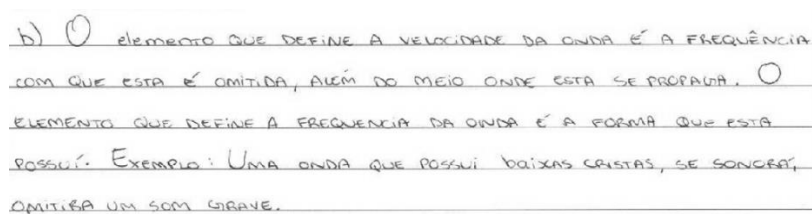 b) O elemento QUE DEFINE A VELOCIDADE DA ONDA É A FREQUÊNCIA
COM QUE ESTA É OMITIDA, ALÉM DO MEIO ONDE ESTA SE PROPAGA. O
ELEMENTO QUE DEFINE A FREQUENCIA DA ONDA É A FORMA QUE ESTA
POSSUÍ. EXEMPLO: UMA ONDA QUE POSSUI baixas CRISTAS, SE SONORA,
OMITIRA UM SOM GRAVE.